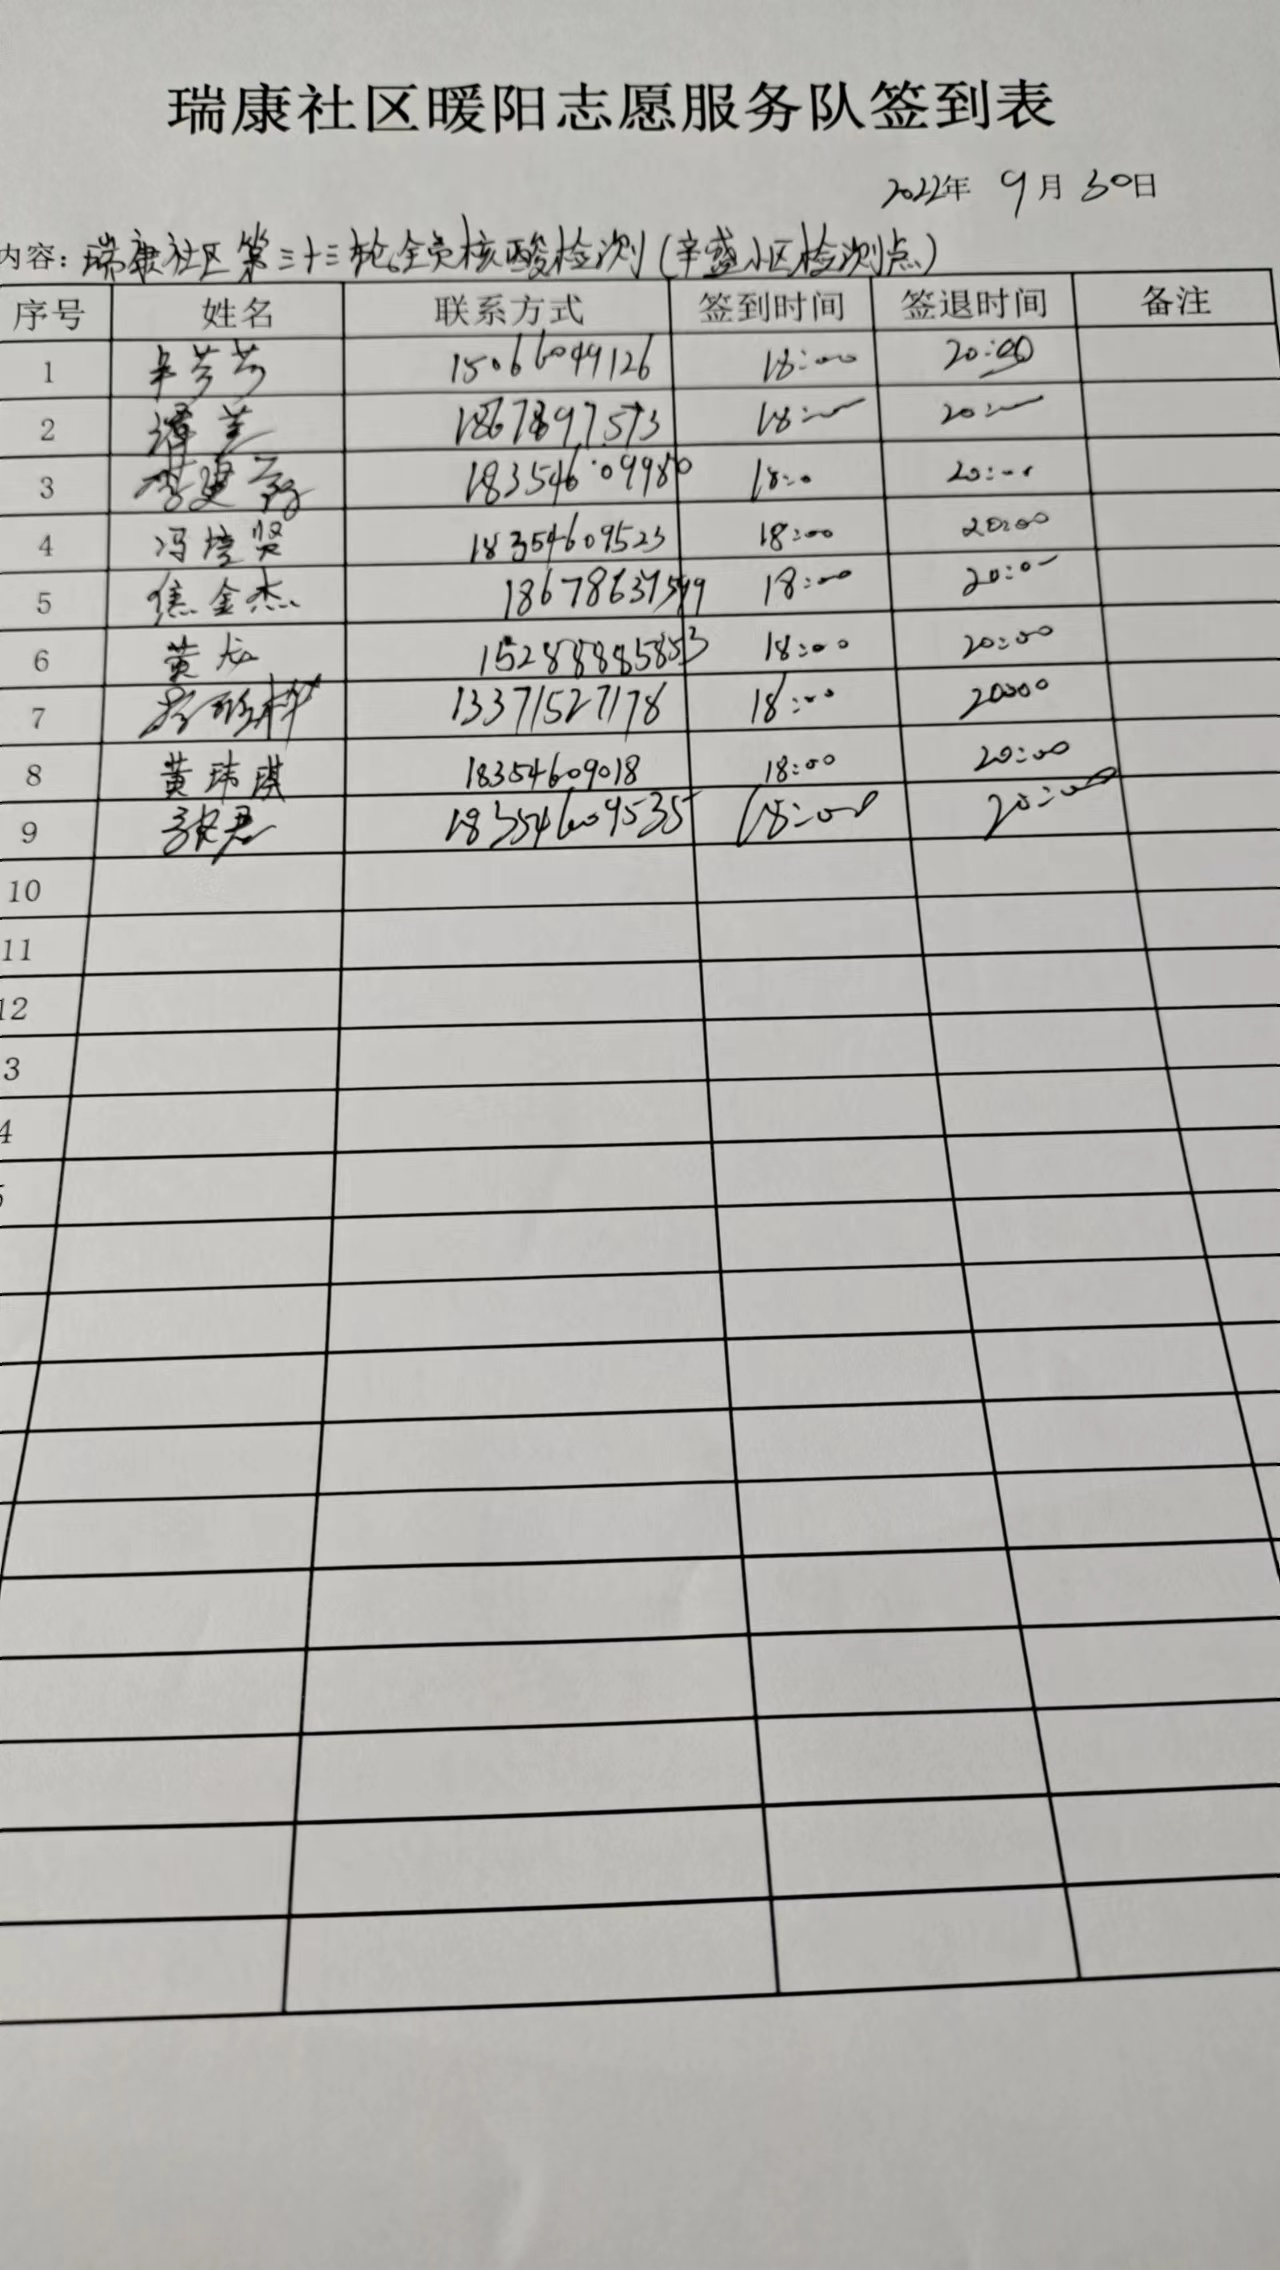 瑞康社区暖阳志愿服务队签到表
2022年 9月 30日
内容：瑞康社区第三十三轮全员核酸检测（辛盛小区检测点）
序号 姓名 联系方式 签到时间 签退时间 备注
1 芳芳 15066049126 18:00 20:00
2 谭兰 18678917573 18:00 20:00
3 李建 18354609980 18:00 20:00
4 冯培贤 18354609523 18:00 20:00
5 焦金杰 18678637599 18:00 20:00
6 黄龙 15288885853 18:00 20:00
7 13371527178 18:00 20:00
8 黄玮琪 18354609018 18:00 20:00
9 张君 18354609535 18:00 20:00
10
11
12
3
4
5